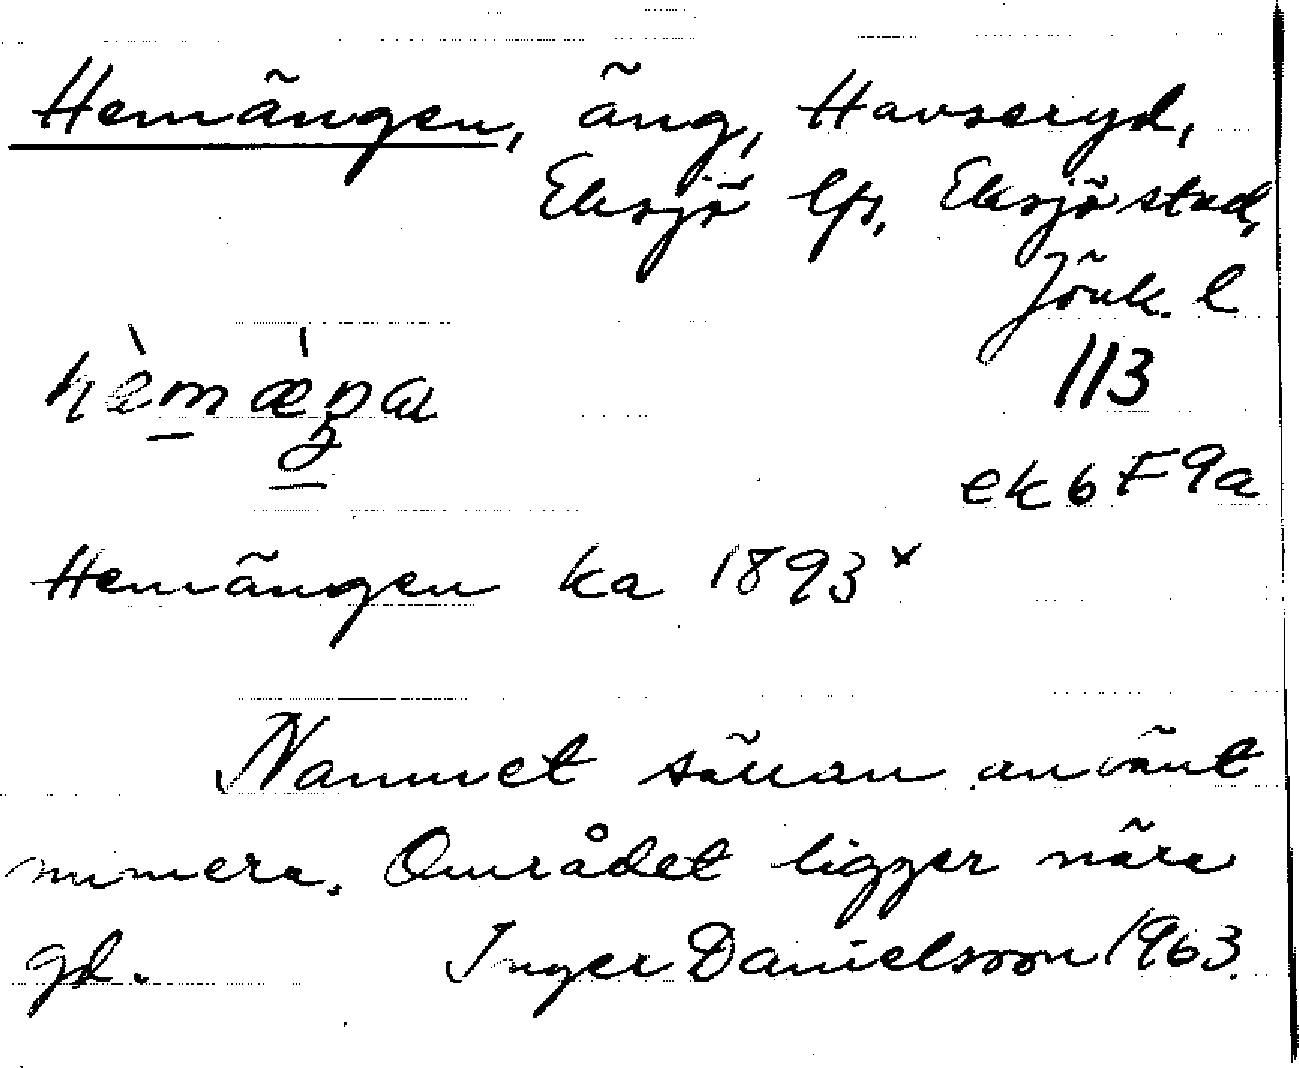 Hemängen, äng, Havseryd,
Eksjö lfs, Eksjö stad,
Jönk. l
113
hèmæ̀ŋa
ek 6 F 9a
Hemängen ka 1893 x
Namnet sällan använt
numera. Området ligger nära
gd. Inger Danielsson 1963.